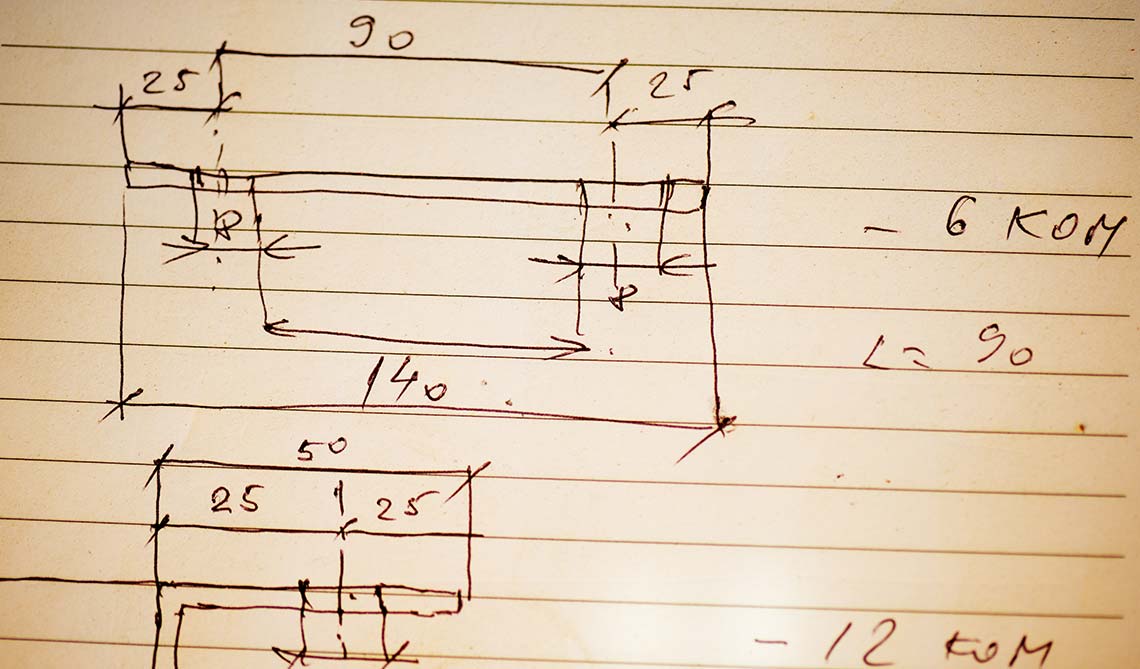 90
25 25
8
- 6 КОМ
8
L= 90
140
50
25 25
- 12 КОМ